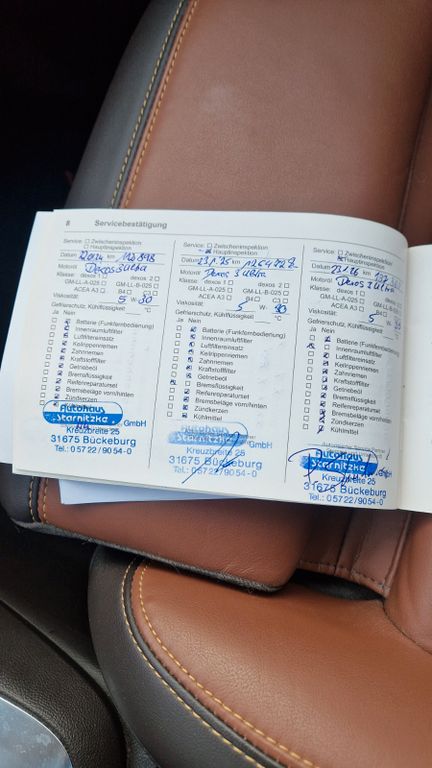 8 Servicebestätigung
Service: Zwischeninspektion
Hauptinspektion
Datum km
Motoröl Dexos 3 ultra
Klasse: dexos 1 dexos 2
GM-LL-A-025 GM-LL-B-025
ACEA A3 B4 C3
Viskosität: 5 W 30
Gefrierschutz, Kühlflüssigkeit: °C
Ja Nein
Batterie (Funkfernbedienung)
Innenraumluftfilter
Luftfiltereinsatz
Keilrippenriemen
Zahnriemen
Kraftstofffilter
Getriebeöl
Bremsflüssigkeit
Reifenreparaturset
Bremsbeläge vorn/hinten
Zündkerzen
Kühlmittel
Autohaus
Starnitzke GmbH
Kreuzbreite 25
31675 Bückeburg
Tel.: 0 57 22 / 90 54-0
Service: Zwischeninspektion
Hauptinspektion
Datum km
Motoröl Dexos 3 ultra
Klasse: dexos 1 dexos 2
GM-LL-A-025 GM-LL-B-025
ACEA A3 B4 C3
Viskosität: 5 W 30
Gefrierschutz, Kühlflüssigkeit: °C
Ja Nein
Batterie (Funkfernbedienung)
Innenraumluftfilter
Luftfiltereinsatz
Keilrippenriemen
Zahnriemen
Kraftstofffilter
Getriebeöl
Bremsflüssigkeit
Reifenreparaturset
Bremsbeläge vorn/hinten
Zündkerzen
Kühlmittel
Autohaus
Starnitzke GmbH
Kreuzbreite 25
31675 Bückeburg
Tel.: 0 57 22 / 90 54-0
Service: Zwischeninspektion
Hauptinspektion
Datum km
Motoröl Dexos 3 ultra
Klasse: dexos 1 dexos 2
GM-LL-A-025 GM-LL-B-025
ACEA A3 B4 C3
Viskosität: 5 W
Gefrierschutz, Kühlflüssigkeit:
Ja Nein
Batterie (Funkfernbedienung)
Innenraumluftfilter
Luftfiltereinsatz
Keilrippenriemen
Zahnriemen
Kraftstofffilter
Getriebeöl
Bremsflüssigkeit
Reifenreparaturset
Bremsbeläge vorn/hinten
Zündkerzen
Kühlmittel
Autohaus
Starnitzke GmbH
Kreuzbreite 25
31675 Bückeburg
Tel.: 0 57 22 / 90 54-0